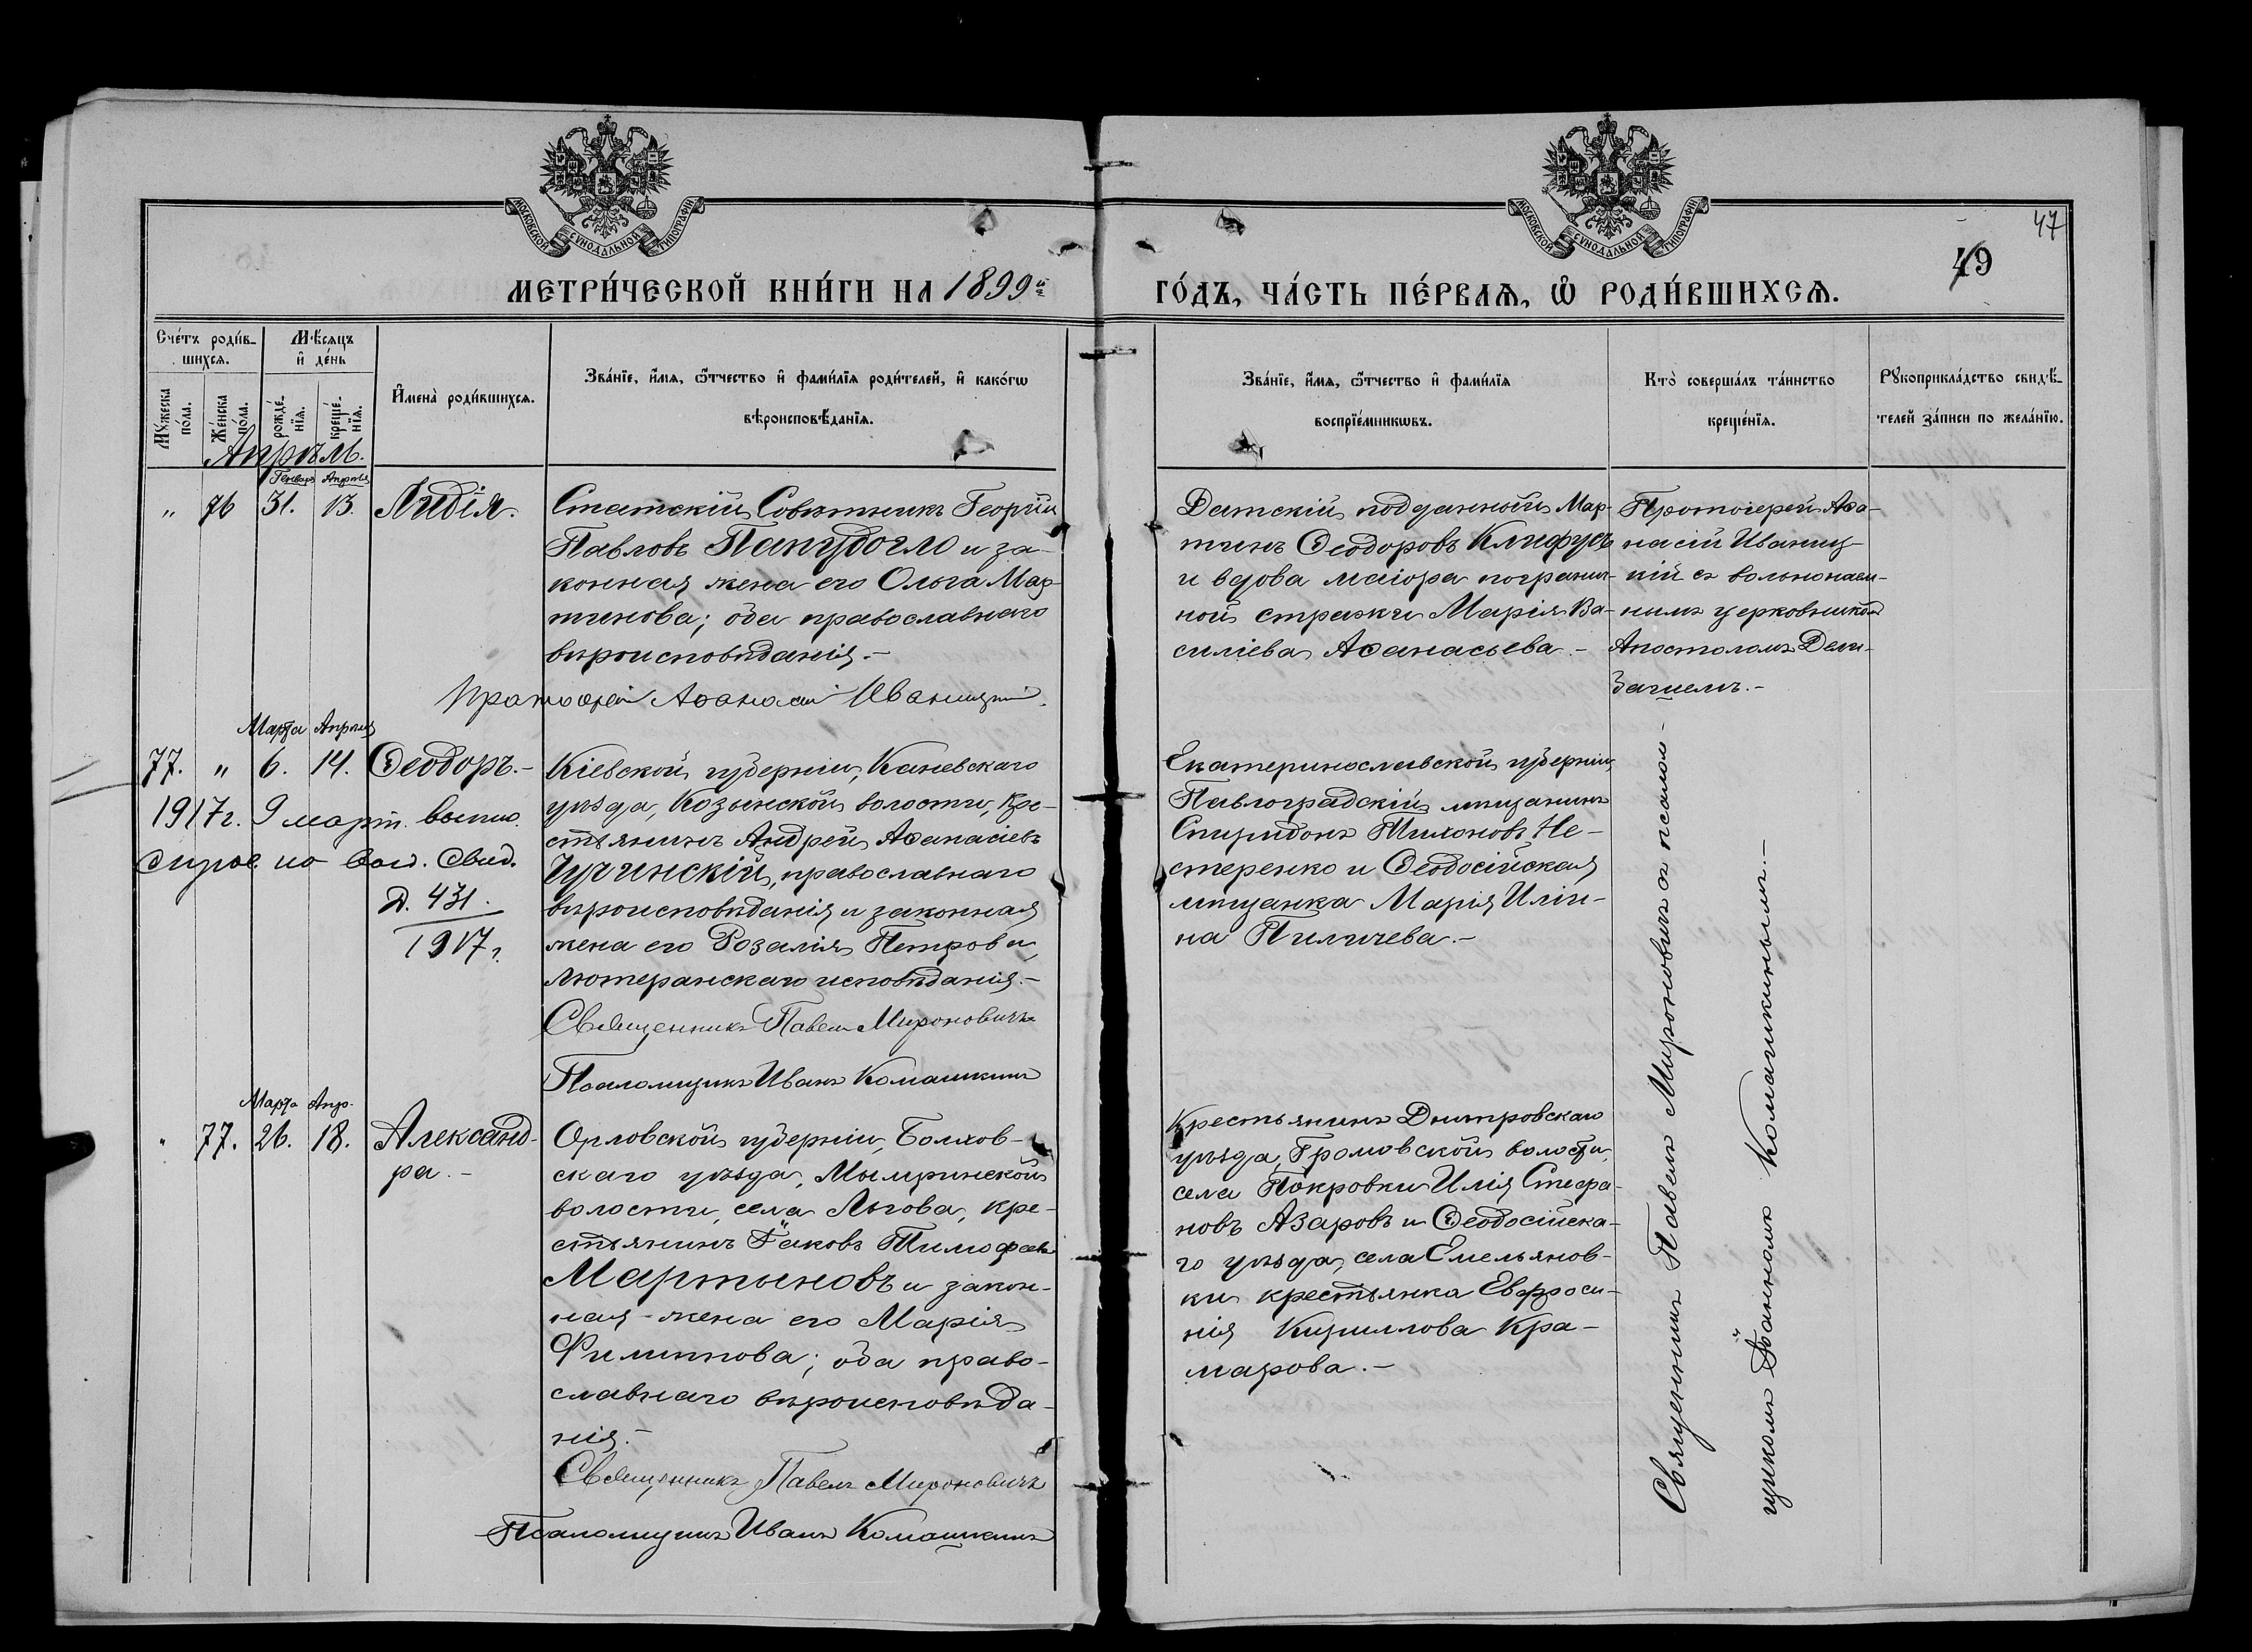 МОСКОВСКОЙ СѴНОДАЛЬНОЙ ТИПОГРАФІИ
МОСКОВСКОЙ СѴНОДАЛЬНОЙ ТИПОГРАФІИ
47
49
МЕТРИ́ЧЕСКОЙ КНИ́ГИ НА 1899й
ГО́ДЪ, ЧА́СТЬ ПЕ́РВАѦ, Ѡ҆ РОДИ́ВШИХСѦ.
Сче́тъ роди́в-
шихсѧ.
Мѣ́сѧцъ
и҆ де́нь
Мꙋ́жеска
по́ла.
Же́нска
по́ла.
рожде́-
нїѧ.
креще́-
нїѧ.
И҆мена̀ роди́вшихсѧ.
Зва́нїе, и҆́мѧ, ѻ҆́тчество и҆ фами́лїѧ роди́телей, и҆ како́гѡ
вѣроисповѣ́данїѧ.
Зва́нїе, и҆́мѧ, ѻ҆́тчество и҆ фами́лїѧ
воспрїе́мникѡвъ.
Кто̀ соверша́лъ та́инство
креще́нїѧ.
Рꙋкоприкла́дство свидѣ́-
телей за́писи по жела́нїю.
Апрѣль.
Генваря Апрѣля
„ 76 31. 13. Лидія.
Статскій Совѣтникъ Георгій
Павловъ Папудогло и за-
конная жена его Ольга Мар-
тинова; оба православнаго
вѣроисповѣданія.-
Протоіерей Аѳанасій Иваницкій.
Датскій подданный Мар-
тинъ Ѳеодоровъ Клифусъ
и вдова маіора погранич-
ной стражи Марія Ва-
силіева Аѳанасьева.-
Протоіерей Аѳа-
насій Иваниц-
кій съ вольнонаем-
нымъ церковникомъ
Апостоломъ Дели-
Марта Апрѣля
77. „ 6. 14. Ѳеодоръ.-
1917г. 9 март.
по свид.
Д. 431.
1917г.
Кіевской губерніи, Каневскаго
уѣзда, Козынской волости, кре-
стьянинъ Андрей Аѳанасіевъ
Чучинскій, православнаго
вѣроисповѣданія и законная
жена его Розалія Петрова,
лютеранскаго исповѣданія.-
Священникъ Павелъ Мироновичъ
Псаломщикъ Иванъ Комашкинъ
Екатеринославской губерніи,
Павлоградскій мѣщанинъ
Спиридонъ Тихоновъ Не-
стеренко и Ѳеодосійская
мѣщанка Марія Ильи-
на Пиличева.-
Священникъ Павелъ Мироновичъ съ псалом-
щикомъ Іоанномъ Комашкинымъ.-
Марта Апр.
„ 77. 26. 18. Александ-
ра.-
Орловской губерніи, Болхов-
скаго уѣзда, Мымринской
волости, села Льгова, кре-
стьянинъ Іаковъ Тимофеевъ
Мартыновъ и закон-
ная жена его Марія
Филиппова; оба право-
славнаго вѣроисповѣда-
нія.-
Священникъ Павелъ Мироновичъ
Псаломщикъ Иванъ Комашкинъ
Крестьянинъ Дмитровскаго
уѣзда, Громовской волости,
села Покровки Илія Стефа-
новъ Азаровъ и Ѳеодосійска-
го уѣзда, села Емельянов-
ки крестьянка Евфроси-
нія Кириллова Кра-
марова.-